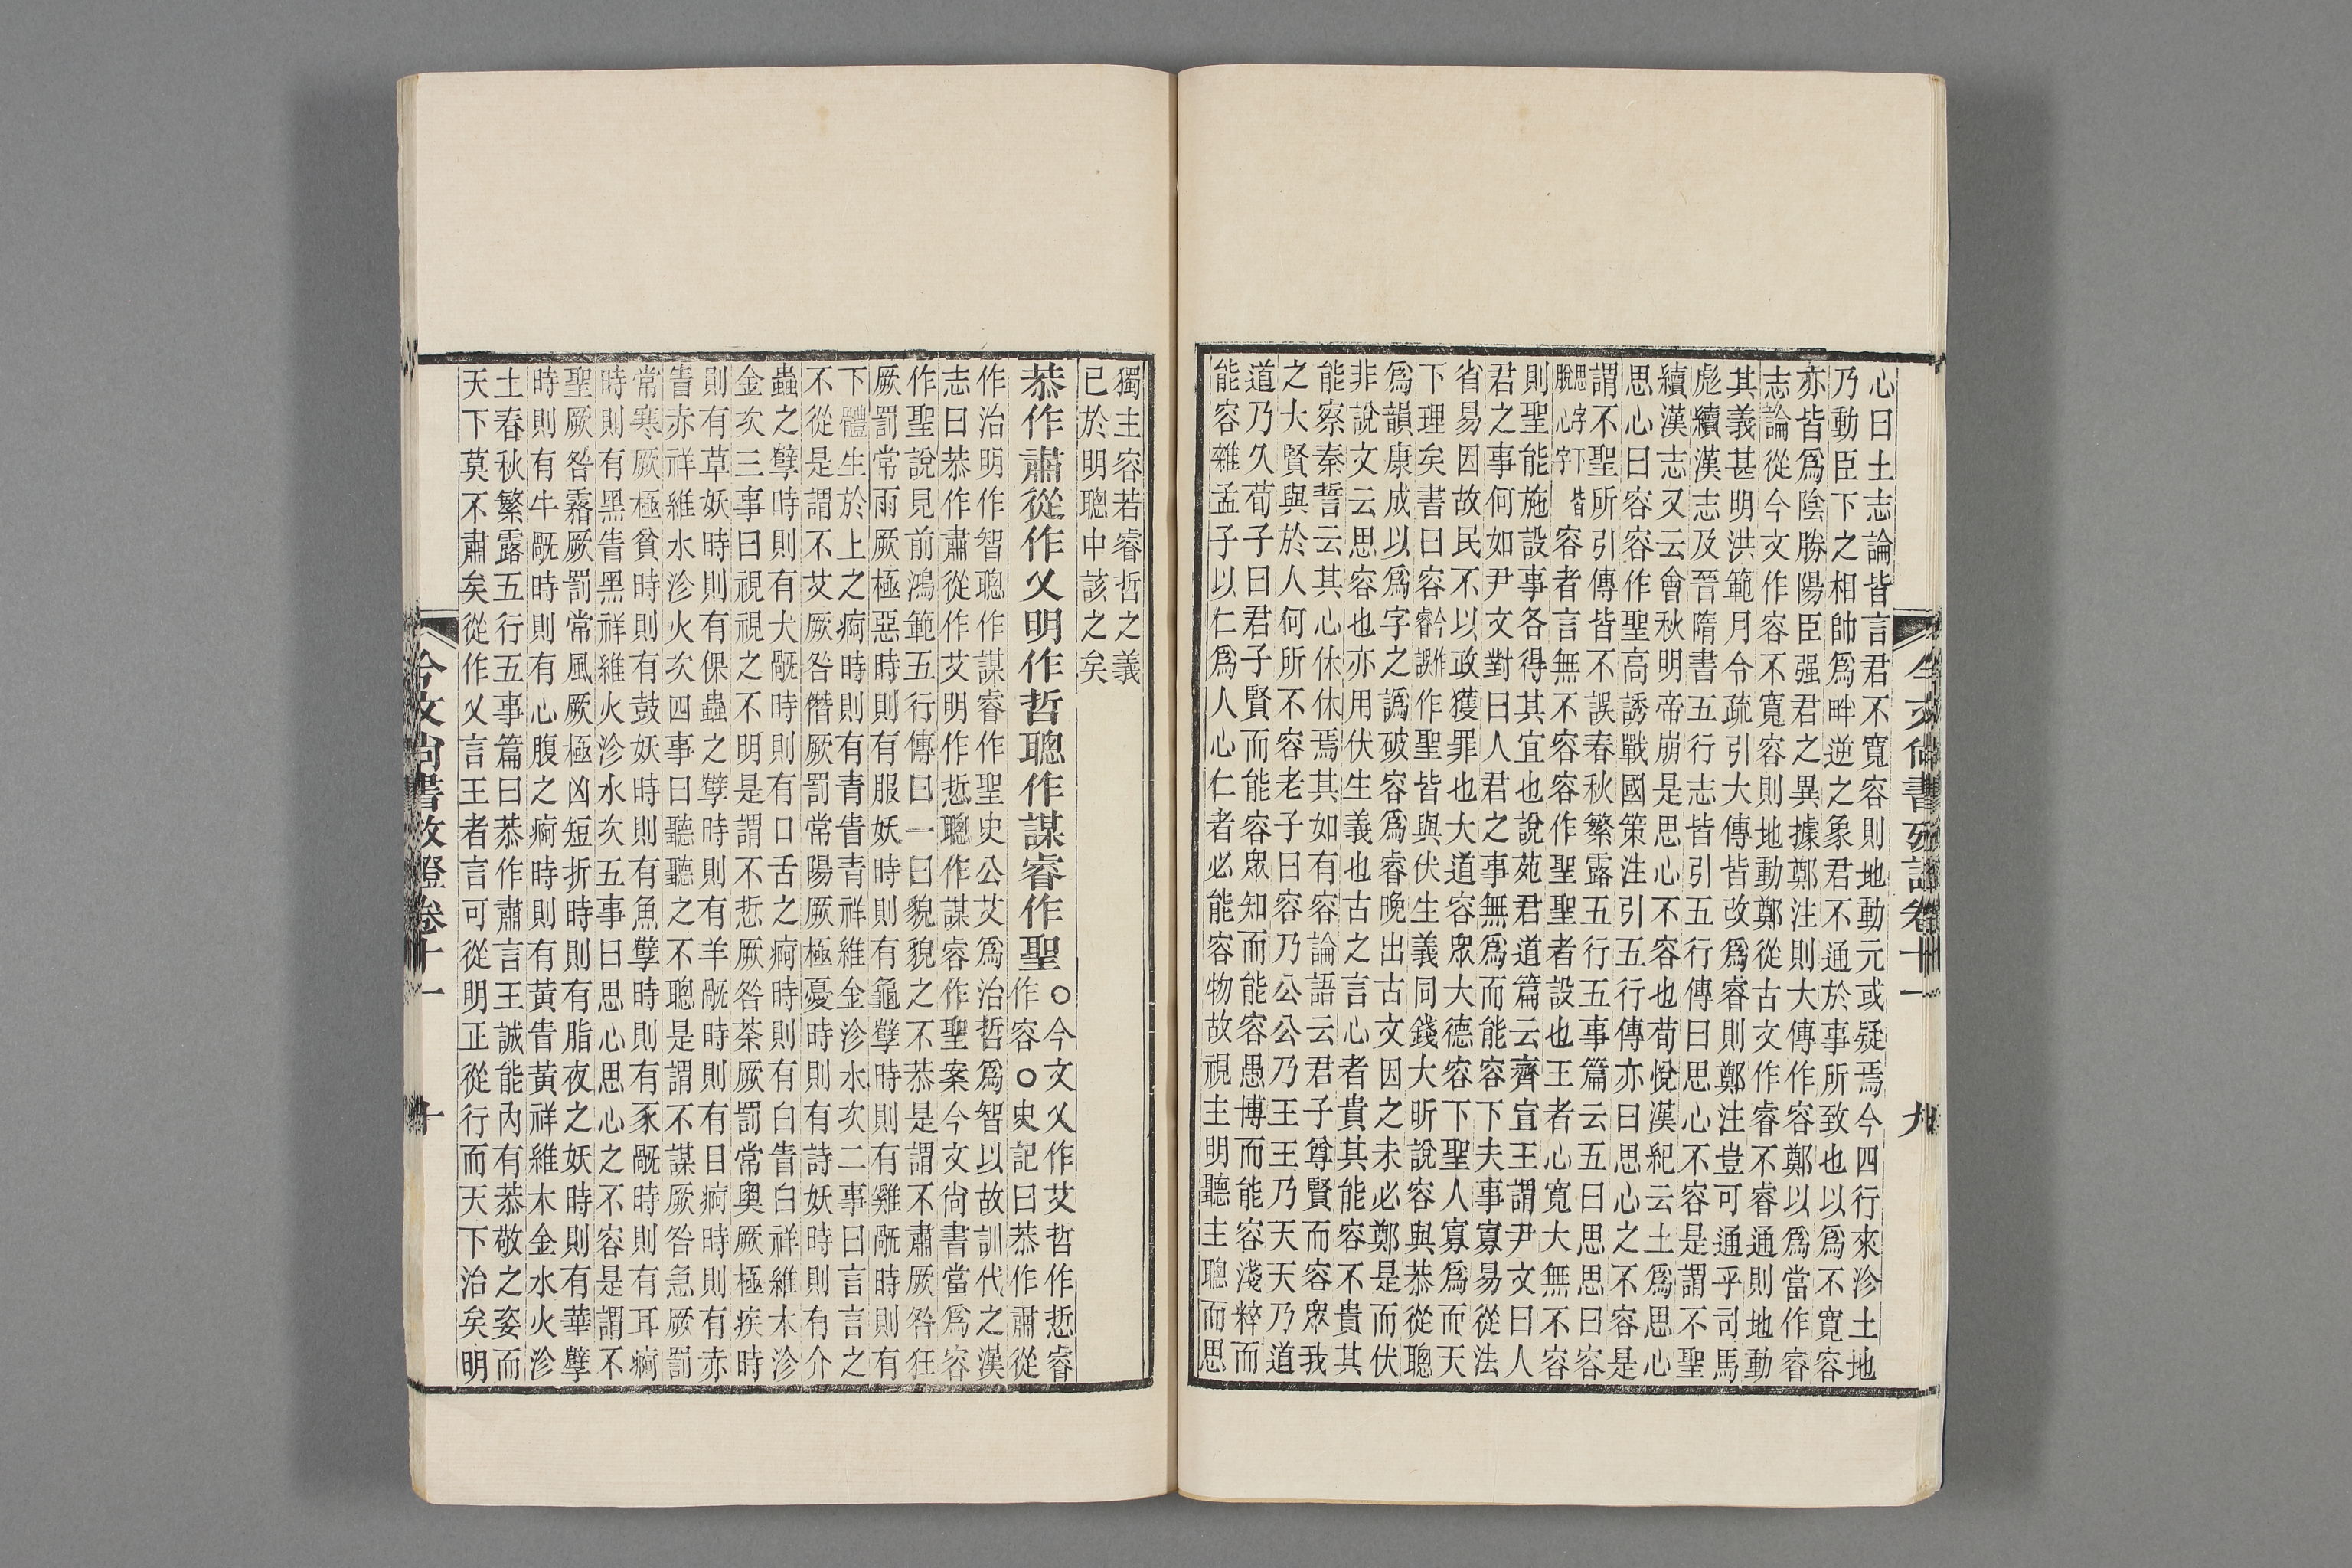 今文尚書攷證卷十一　九
心曰土志論皆言君不寬容則地動元或疑焉今四行來沴土地
乃動臣下之相帥爲畔逆之象君不通於事所致也以爲不寬容
亦皆爲陰勝陽臣强君之異據鄭注則大傳作容鄭以爲當作睿
志論從今文作容不寬容則地動鄭從古文作睿不睿通則地動
其義甚明洪範月令疏引大傳皆改爲睿則鄭注豈可通乎司馬
彪續漢志及晉隋書五行志皆引五行傳曰思心不容是謂不聖
續漢志又云會秋明帝崩是思心不容也荀悅漢紀云土爲思心
思心曰容容作聖高誘戰國策注引五行傳亦曰思心之不容是
謂不聖所引傳皆不誤春秋繁露五行五事篇云五曰思思曰容
思字下皆脫心字容者言無不容容作聖聖者設也王者心寬大無不容
則聖能施設事各得其宜也說苑君道篇云齊宣王謂尹文曰人
君之事何如尹文對曰人君之事無爲而能容下夫事寡易從法
省易因故民不以政獲罪也大道容眾大德容下聖人寡爲而天
下理矣書曰容今作睿誤作聖皆與伏生義同錢大昕說容與恭從聰
爲韻康成以爲字之譌破容爲睿晚出古文因之未必鄭是而伏
非說文云思容也亦用伏生義也古之言心者貴其能容不貴其
能察秦誓云其心休休焉其如有容論語云君子尊賢而容眾我
之大賢與於人何所不容老子曰容乃公公乃王王乃天天乃道
道乃久荀子曰君子賢而能容眾知而能容愚博而能容淺粹而
能容雜孟子以仁爲人心仁者必能容物故視主明聽主聰而思
獨主容若睿哲之義
已於明聰中該之矣
恭作肅從作乂明作哲聰作謀睿作聖○今文乂作艾哲作悊睿
作容○史記曰恭作肅從
作治明作智聰作謀睿作聖史公艾爲治哲爲智以故訓代之漢
志曰恭作肅從作艾明作悊聰作謀睿作聖案今文尚書當爲容
作聖說見前鴻範五行傳曰一曰貌貌之不恭是謂不肅厥咎狂
厥罰常雨厥極惡時則有服妖時則有龜孽時則有雞旤時則有
下體生於上之痾時則有青眚青祥維金沴水次二事曰言言之
不從是謂不艾厥咎僭厥罰常陽厥極憂時則有詩妖時則有介
蟲之孽時則有犬旤時則有口舌之痾時則有白眚白祥維木沴
金次三事曰視視之不明是謂不悊厥咎荼厥罰常奧厥極疾時
則有草妖時則有倮蟲之孽時則有羊旤時則有目痾時則有赤
眚赤祥維水沴火次四事曰聽聽之不聰是謂不謀厥咎急厥罰
常寒厥極貧時則有鼓妖時則有魚孽時則有豕旤時則有耳痾
時則有黑眚黑祥維火沴水次五事曰思心思心之不容是謂不
聖厥咎霿厥罰常風厥極凶短折時則有脂夜之妖時則有華孽
時則有牛旤時則有心腹之痾時則有黃眚黃祥維木金水火沴
土春秋繁露五行五事篇曰恭作肅言王誠能內有恭敬之姿而
天下莫不肅矣從作乂言王者言可從明正從行而天下治矣明
今文尚書攷證卷十一　十